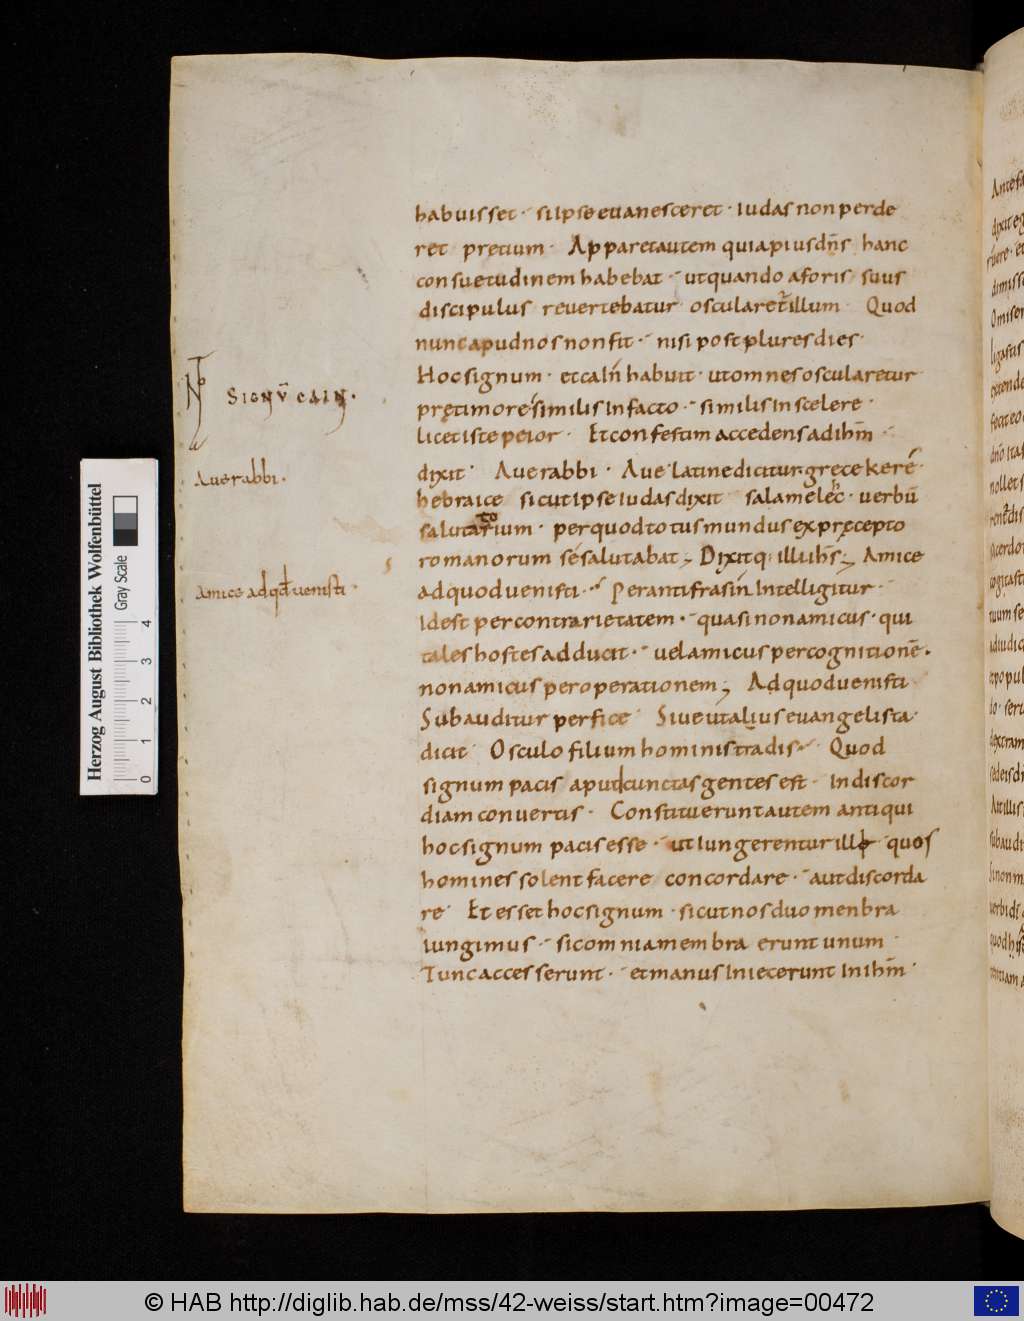 habuisset · si ipse evanesceret · iudas non perde
ret pretium · Apparet autem quia pius dn̄s hanc
consuetudinem habebat · ut quando aforis suus
discipulus revertebatur oscularet᷑ illum Quod
nunc apud nos non fit · nisi post plures dies ·
Hoc signum · et cain habuit · ut omnes oscularetur
SIGNŪ CAIN ·
pretimore similis In facto · similis In scelere ·
licet iste peior · Et confestim accedens ad ihm̄
Ave rabbi ·
dixit · Ave rabbi · Ave latine dicitur grece kerē
hebraice sicut ipse iudas dixit salamelec · verbū
to
salutarium · per quod totus mundus ex precepto
romanorum se salutabat ; Dixitq: illi ihs̄ ; Amice
Amice ad qd̄ venisti ·
ad quod venisti · Per antifrasin Intelligitur ·
Id est per contrarietatem · quasi non amicus · qui
tales hostes adducit · vel amicus per cognitionē ·
non amicus per operationem ; Ad quod venisti
Subauditur perfice Sive ut alius evangelista ·
dicit Osculo filium hominis tradis · Quod
signum pacis aput cunctas gentes est · In discor
diam convertis · Constituerunt autem antiqui
hoc signum pacis esse · ut Iungerentur illę quos
homines solent facere concordare · aut discorda
re Et esset hoc signum · sicut nos duo menbra
iungimus · sic omnia membra erunt unum ·
Tunc accesserunt · et manus Iniecerunt In ihm̄ ·
Herzog August Bibliothek Wolfenbüttel
Gray Scale
0 1 2 3 4
© HAB http://diglib.hab.de/mss/42-weiss/start.htm?image=00472